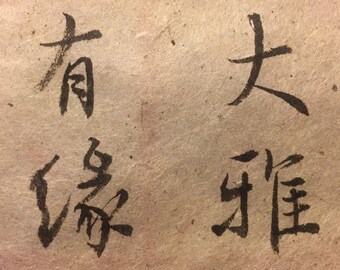 大雅
有缘